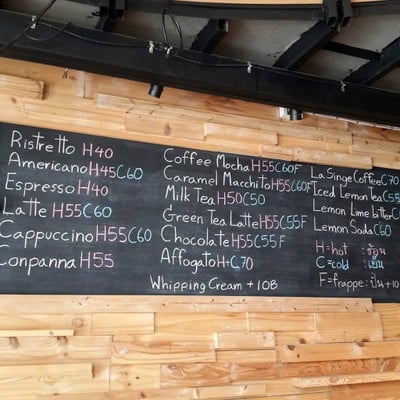 Ristretto H40
Americano H45C60
Espresso H40
Latte H55C60
Cappuccino H55C60
Conpanna H55
Coffee Mocha H55C60F
Caramel Macchito H55C60F
Milk Tea H50C50
Green Tea Latte H55C55F
Chocolate H55C55F
Affogato H+C70
Whipping Cream +10B
La Singe Coffee C70
Iced Lemon Tea C55
Lemon Lime bitter C60
Lemon Soda C60
H=hot : ร้อน
C=cold : เย็น
F=frappe : ปั่น +10